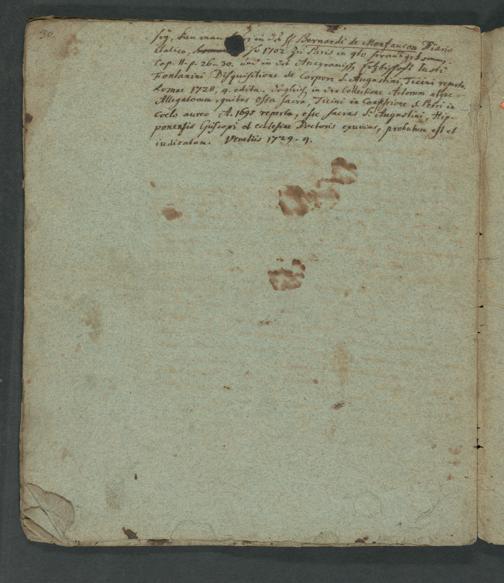 30.
sey, kan man in des P. Bernardi de Monfaucon Diario
Italico, so 1702 zu Paris in 4to
Cap. II. p. 26-30. und in des Ancyranisch. Justi
Fontanini Disquisitione de Corpore S. Augustini, Ticini reperto,
Romae 1728, 4. edita. in der Collectione Actorum atque
Allegatorum, quibus ossa sacra, Ticini in Confessione S. Petri in
Coelo aureo A. 1695 reperta, esse sacras S. Augustini, Hip-
ponensis Episcopi et ecclesiae Doctoris exuvias, probatum est et
iudicatum. Venetiis 1729. 4.